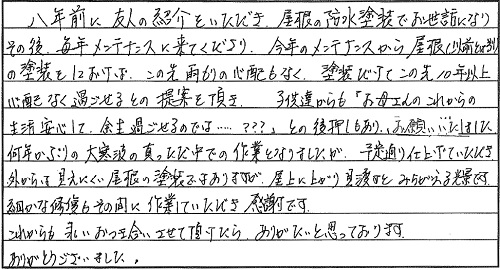 八年前に友人の紹介をいただき、屋根の防水塗装でお世話になり
その後、毎年メンテナンスに来てくださり、今年のメンテナンスから屋根(以前とは別)
の塗装をしておけば、この先雨もりの心配もなく、塗装だけでこの先10年以上
心配なく過ごせるとの提案を頂き、子供達からも「お母さんのこれからの
生活安心して、余生過ごせるのでは……???」との後押しもあり、お願いいたしました。
何年かぶりの大寒波の真っただ中での作業となりましたが、予定通り仕上げていただき
外からは見えにくい屋根の塗装ではありますが、屋上に上がり見渡すとみちがえる光景です。
細かな修復もその間に作業していただき感謝です。
これからも永いおつき合いさせて頂けたら、ありがたいと思っております。
ありがとうございました。